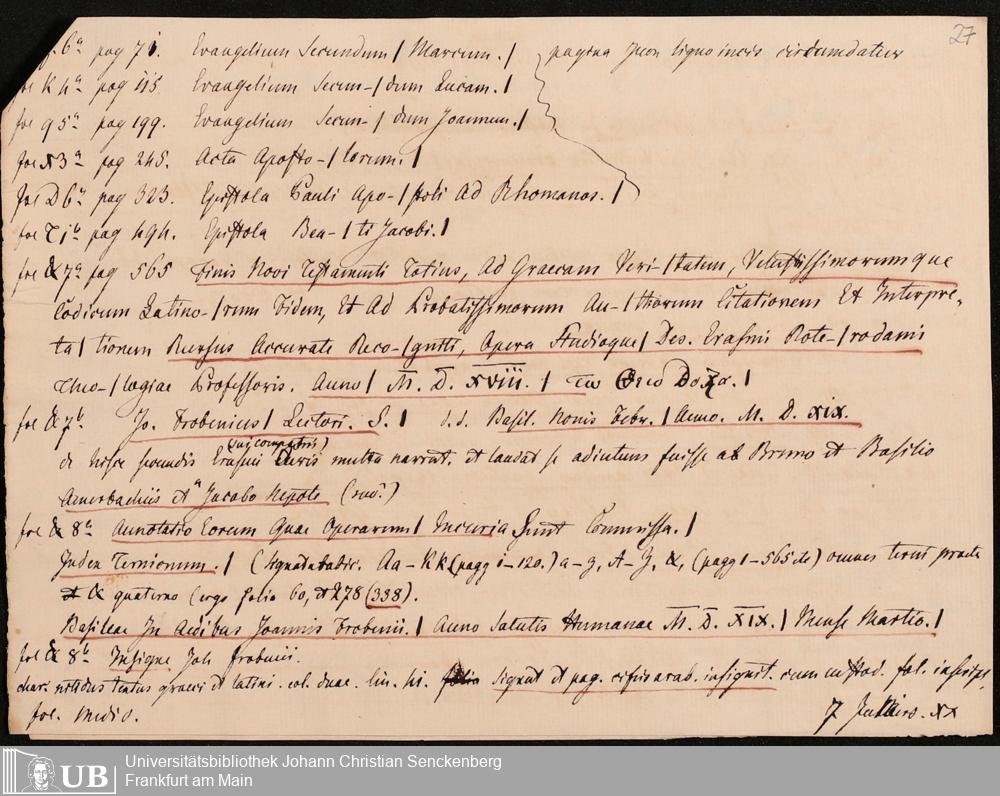 27
6ᵃ pag 71. Evangelium Secundum / Marcum. / pagina ligno incis circumdatur
k 4ᵃ pag 115 Evangelium Secun-/dum Lucam. /
fol q 5ᵃ pag 199. Evangelium Secun-/dum Joannem. /
fol x3ᵃ pag 245. Acta Aposto-/lorum. /
fol D6ᵃ pag 323. Epistola Pauli Apo-/stoli Ad Rhomanos. /
pag 494. Epistola Bea-/ti Jacobi. /
fol & 7ᵃ pag 565 Finis Novi Testamenti Totius, Ad Graecam Veri-/tatem, Vetustissimorumque
Codicum Latino-/rum Fidem, Et Ad Probatissimorum Au-/thorum Citationem Et Interpre-
ta/tionem Rursus Accurate Reco-/gniti, Opera Studioque / Des. Erasmi Rote-/rodami
Theo-/logiae Professoris. Anno / M. D. XVIII. / τω Θεω Δοξα. /
fol & 7ᵇ Jo. Frobenius / Lectori. S. / d. d. Basil. Nonis Febr. / Anno. M. D. XIX.
de hisce secundis Erasmi curis multa narrat. et laudat se adiutum fuisse ab Bruno et Basilio
Amerbachiis et a Jacobo Nepote
fol & 8ᵃ Annotatio Eorum Quae Operarum / Incuria Sunt Commissa. /
Index Ternionum. / (Signat. alphabetic. Aa – Kk (pagg 1–120.) a–z, A–Z, &, (pagg 1–565 etc) omnes terni praeter
& quaterno (ergo folia 60, et 278 (338).
Basileae In Aedibus Joannis Frobenii. / Anno Salutis Humanae M. D. XIX. / Mense Martio. /
fol & 8ᵇ Insigne Joh Frobenii.
char. nitidus textus graeci et latini. col. duae. lin. signat et pag. cifris arab. insignit. cum custod. fol. inscript.
for. medio. 7 XX
UB
Universitätsbibliothek Johann Christian Senckenberg
Frankfurt am Main